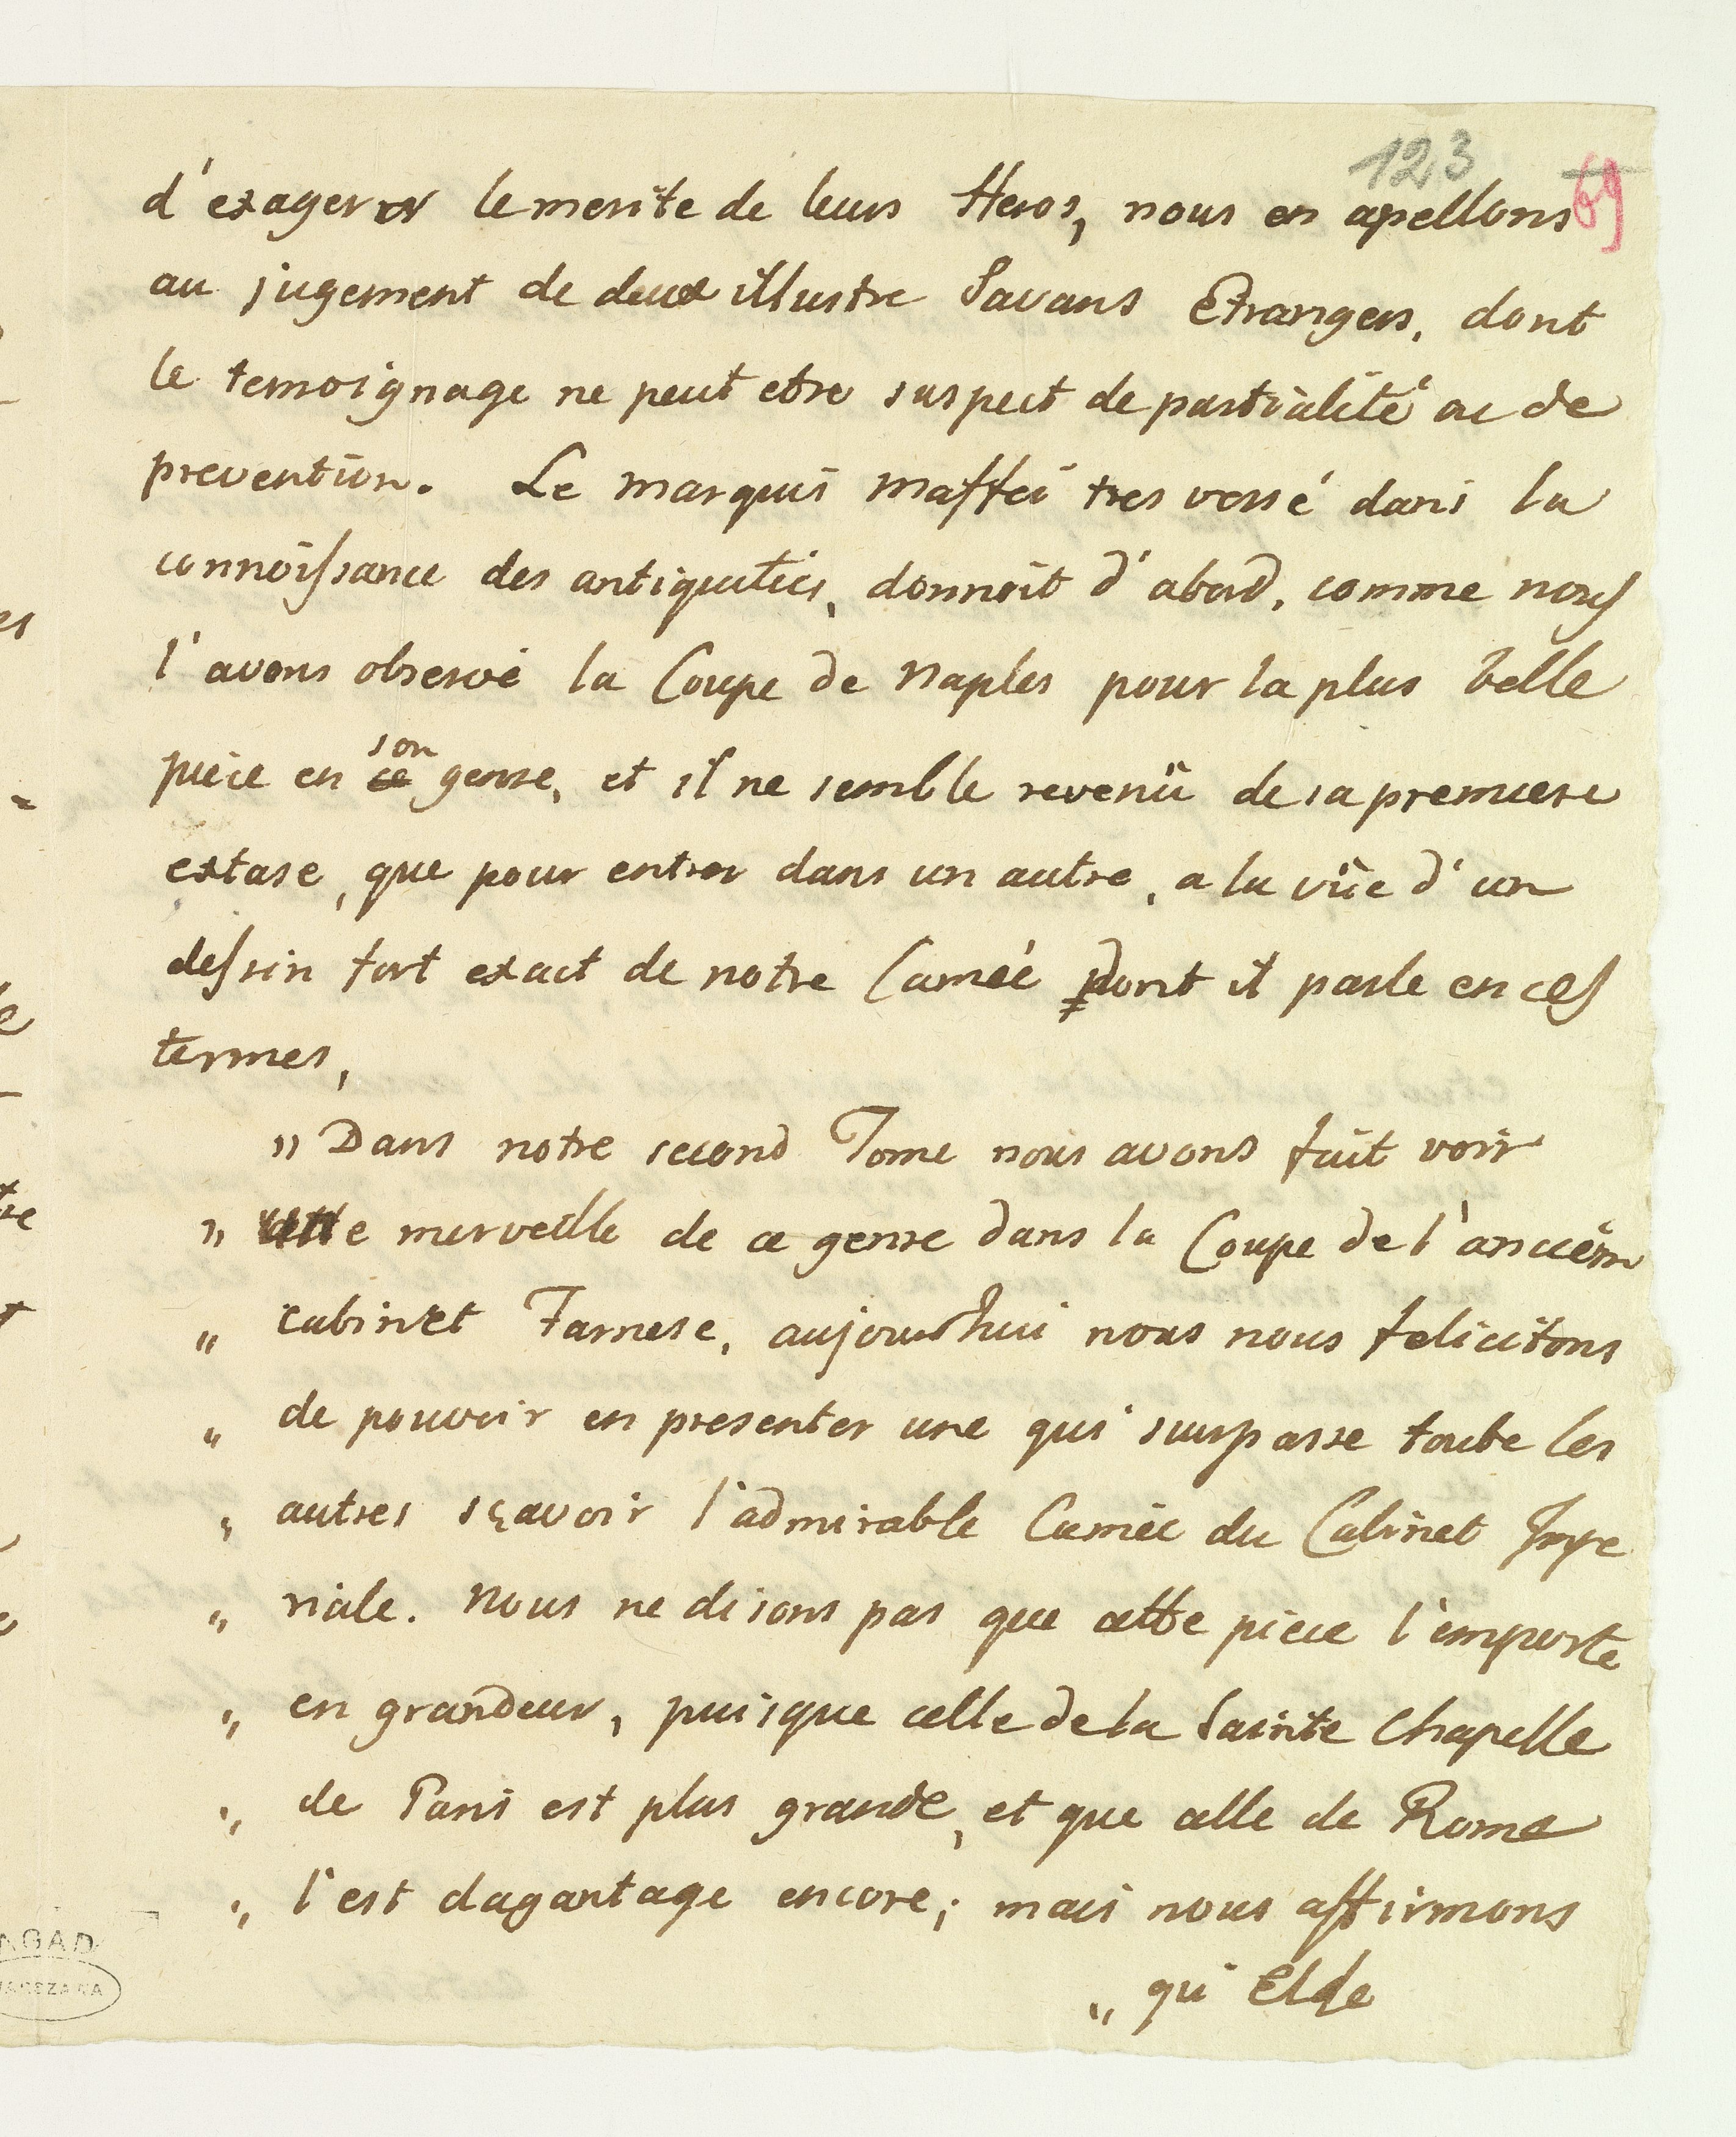 123
69
d'exagerer le merite de leurs Heros, nous en apellons
au jugement de deux illustre Savans Etrangers, dont
le temoignage ne peut etre suspect de partialité ou de
prevention. Le marquis Maffei tres versé dans la
connoissance des antiquités, donnoit d'abord, comme nous
l'avons observé la Coupe de Naples pour la plus belle
son
piéce en ce genre, et il ne semble revenü de sa premiere
extase, que pour entrer dans un autre, a la vüe d'un
dessin fort exact de notre Camée dont il parle en ces
termes,
„ Dans notre second Tome nous avons fait voir
„ cette merveille de ce genre dans la Coupe de l'ancien
„ cabinet Farnese, aujourdhui nous nous felicitons
„ de pouvoir en presenter une qui surpasse toute les
„ autres sçavoir l'admirable Camée du Cabinet Impe
„ riale. Nous ne disons pas que cette piece l'emporte
„ en grandeur, puisque celle de la Sainte Chapelle
„ de Paris est plus grande, et que celle de Rome
„ l'est dagantage encore; mais nous affirmons
„ qu'Elde
AGAD
WARSZAWA